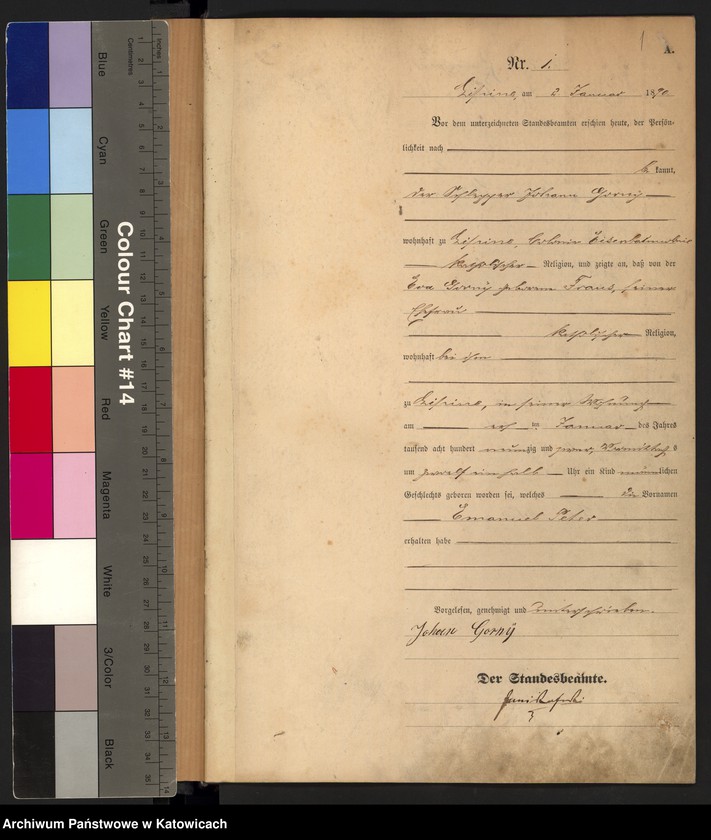 1
A.
Nr. 1.
am 2 Januar 1890
Vor dem unterzeichneten Standesbeamten erschien heute, der Persön-
lichkeit nach
kannt,
der Schlepper Johann Gorny
wohnhaft zu
katholischer Religion, und zeigte an, daß von der
Eva Gorny geborenen seiner
Ehefrau
katholischer Religion,
wohnhaft bei ihm
zu in seiner Wohnung
am Januar des Jahres
tausend acht hundert neunzig und zwar Vormittags
um zwölf ein halb Uhr ein Kind männlichen
Geschlechts geboren worden sei, welches die Vornamen
Emanuel Peter
erhalten habe
Vorgelesen, genehmigt und unterschrieben.
Johann Gorny
Der Standesbeamte.
Colour Chart #14
Blue
Cyan
Green
Yellow
Red
Magenta
White
3/Color
Black
Centimetres
Inches
Archiwum Państwowe w Katowicach